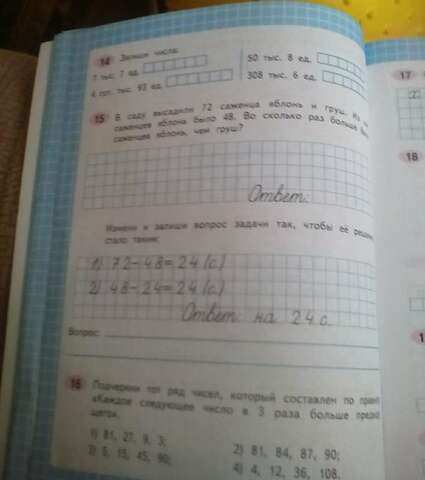 14 Запиши числа.
7 тыс. 7 ед.
50 тыс. 8 ед.
4 сот. тыс. 93 ед.
308 тыс. 6 ед.
15 В саду высадили 72 саженца яблонь и груш. Из
саженцев яблонь было 48. Во сколько раз больше
саженцев яблонь, чем груш?
Ответ:
Измени и запиши вопрос задачи так, чтобы её
стало таким:
1) 72-48=24 (с.)
2) 48-24=24 (с.)
Ответ: на 24 с.
Вопрос:
16 Подчеркни тот ряд чисел, который составлен по
«Каждое следующее число в 3 раза больше
1) 81, 27, 9, 3;
2) 81, 84, 87, 90;
3) 5, 15, 45, 90;
4) 4, 12, 36, 108.
17
18